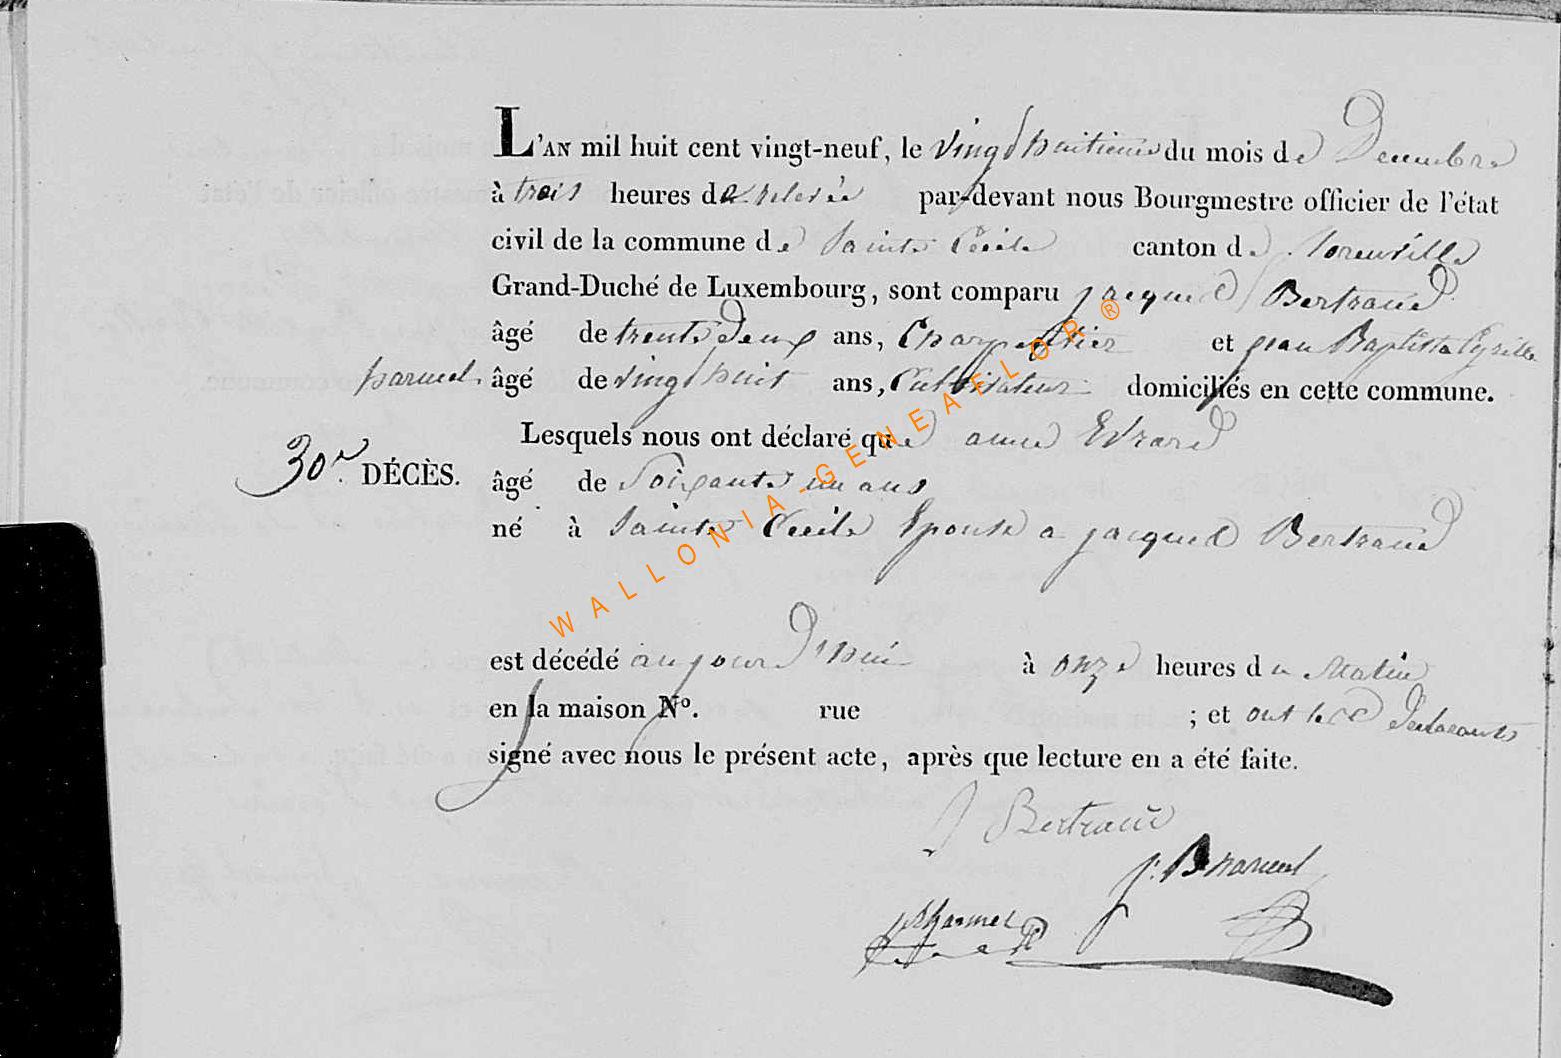 L'AN mil huit cent vingt-neuf, le vingt huitieme du mois de Decembre
à trois heures de relevée par-devant nous Bourgmestre officier de l'état
civil de la commune de Sainte Cécile canton de florenville
Grand-Duché de Luxembourg, sont comparu jacques Bertrand
âgé de trente deux ans, Charpentier et jean Baptiste Cyrille
harmel. âgé de vingt huit ans, Cultivateur domiciliés en cette commune.
Lesquels nous ont déclaré que anne Evrard
30e. DÉCÈS. âgé de Soixante un ans
né à Sainte Cecile Epouse a jacques Bertrand
est décédé aujourd'hui à onze heures du Matin
en la maison No. rue ; et ont les declarants
signé avec nous le présent acte, après que lecture en a été faite.
J Bertrand
j. B harmel
WALLONIA-GENEAELOR®